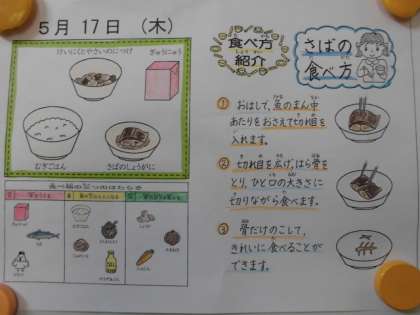 5月 17日 (木)
けいにくとやさいのにつけ
ぎゅうにゅう
むぎごはん
さばのしょうがに
食べ方
紹介
さばの
食べ方
① おはしで、魚のまん中
あたりをおさえて切れ目を
入れます。
② 切れ目を広げ、はら骨を
とり、ひと口の大きさに
切りながら食べます。
③ 骨だけのこして、
きれいに食べることが
できます。